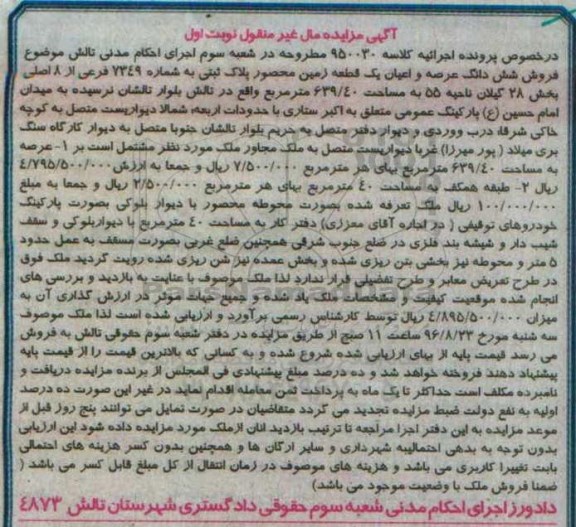 آگهی مزایده مال غیر منقول نوبت اول
درخصوص پرونده اجرائیه کلاسه ۹۵۰۰۳۰ مطروحه در شعبه سوم اجرای احکام مدنی تالش موضوع
فروش شش دانگ عرصه و اعیان یک قطعه زمین محصور پلاک ثبتی به شماره ۷۳۴۹ فرعی از ۸ اصلی
بخش ۲۸ گیلان ناحیه ۵۵ به مساحت ۶۳۹/۴۰ مترمربع واقع در تالش بلوار تالشان نرسیده به میدان
امام حسین (ع) پارکینگ عمومی متعلق به اکبر ستاری با حدودات اربعه: شمالا دیواریست متصل به کوچه
خاکی شرقا: درب ورودی و دیوار دفتر متصل به حریم بلوار تالشان جنوبا متصل به دیوار کارگاه سنگ
بری میلاد ( پور میرزا) غربا دیواریست متصل به ملک مجاور ملک مورد نظر مشتمل است بر ۱- عرصه
به مساحت ۶۳۹/۴۰ مترمربع بهای هر مترمربع ۷/۵۰۰/۰۰۰ ریال و جمعا به ارزش ۴/۷۹۵/۵۰۰/۰۰۰
ریال ۲- طبقه همکف به مساحت ۴۰ مترمربع بهای هر مترمربع ۲/۵۰۰/۰۰۰ ریال و جمعا به مبلغ
۱۰۰/۰۰۰/۰۰۰ ریال ملک تعرفه شده بصورت محوطه محصور با دیوار بلوکی بصورت پارکینگ
خودروهای توقیفی ( در اجاره آقای معززی) دفتر کار به مساحت ۴۰ مترمربع با دیواربلوکی و سقف
شیب دار و شیشه بند فلزی در ضلع جنوب شرقی همچنین ضلع غربی بصورت مسقف به عمل حدود
۵ متر و محوطه نیز بخشی بتن ریزی شده و بخش عمده نیز شن ریزی شده رویت گردید ملک فوق
در طرح تعریض معابر و طرح تفضیلی قرار ندارد لذا ملک موصوف با عنایت به بازدید و بررسی های
انجام شده موقعیت کیفیت و مشخصات ملک یاد شده و جمیع جهات موثر در ارزش گذاری آن به
میزان ۴/۸۹۵/۵۰۰/۰۰۰ ریال توسط کارشناس رسمی برآورد و ارزیابی شده است لذا ملک موصوف
سه شنبه مورخ ۹۶/۸/۲۳ ساعت ۱۱ صبح از طریق مزایده در دفتر شعبه سوم حقوقی تالش به فروش
می رسد قیمت پایه از بهای ارزیابی شده شروع شده و به کسانی که بالاترین قیمت را از قیمت پایه
پیشنهاد دهند فروخته خواهد شد و ده درصد مبلغ پیشنهادی فی المجلس از برنده مزایده دریافت و
نامبرده مکلف است حداکثر تا یک ماه به پرداخت ثمن معامله اقدام نماید در غیر این صورت ده درصد
اولیه به نفع دولت ضبط مزایده تجدید می گردد متقاضیان در صورت تمایل می توانند پنج روز قبل از
موعد مزایده به این دفتر اجرا مراجعه تا ترتیب بازدید انان ازملک مورد مزایده داده شود این ارزیابی
بدون توجه به بدهی احتمالیبه شهرداری و سایر ارگان ها و همچنین بدون کسر هزینه های احتمالی
بابت تغییرا کاربری می باشد و هزینه های موصوف در زمان انتقال از کل مبلغ قابل کسر می باشد (
ضمنا فروش ملک با وضعیت موجود می باشد)
دادورز اجرای احکام مدنی شعبه سوم حقوقی دادگستری شهرستان تالش ۴۸۷۳